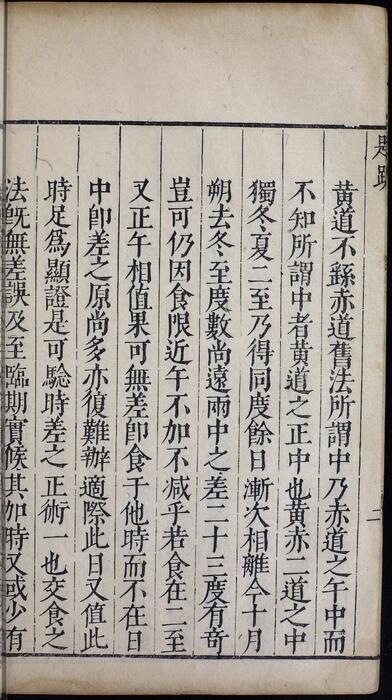 題跋
黃道不繇赤道舊法所謂中乃赤道之午中而
不知所謂中者黃道之正中也黃赤二道之中
獨冬夏二至乃得同度餘日漸次相離今十月
朔去冬至度數尚遠兩中之差二十三度有奇
豈可仍因食限近午不加不減乎若食在二至
又正午相值果可無差卽食于他時而不在日
中卽差之原尚多亦復難辦適際此日又值此
時足爲顯證是可驗時差之正術一也交食之
法旣無差誤及至臨期實候其加時又或少有